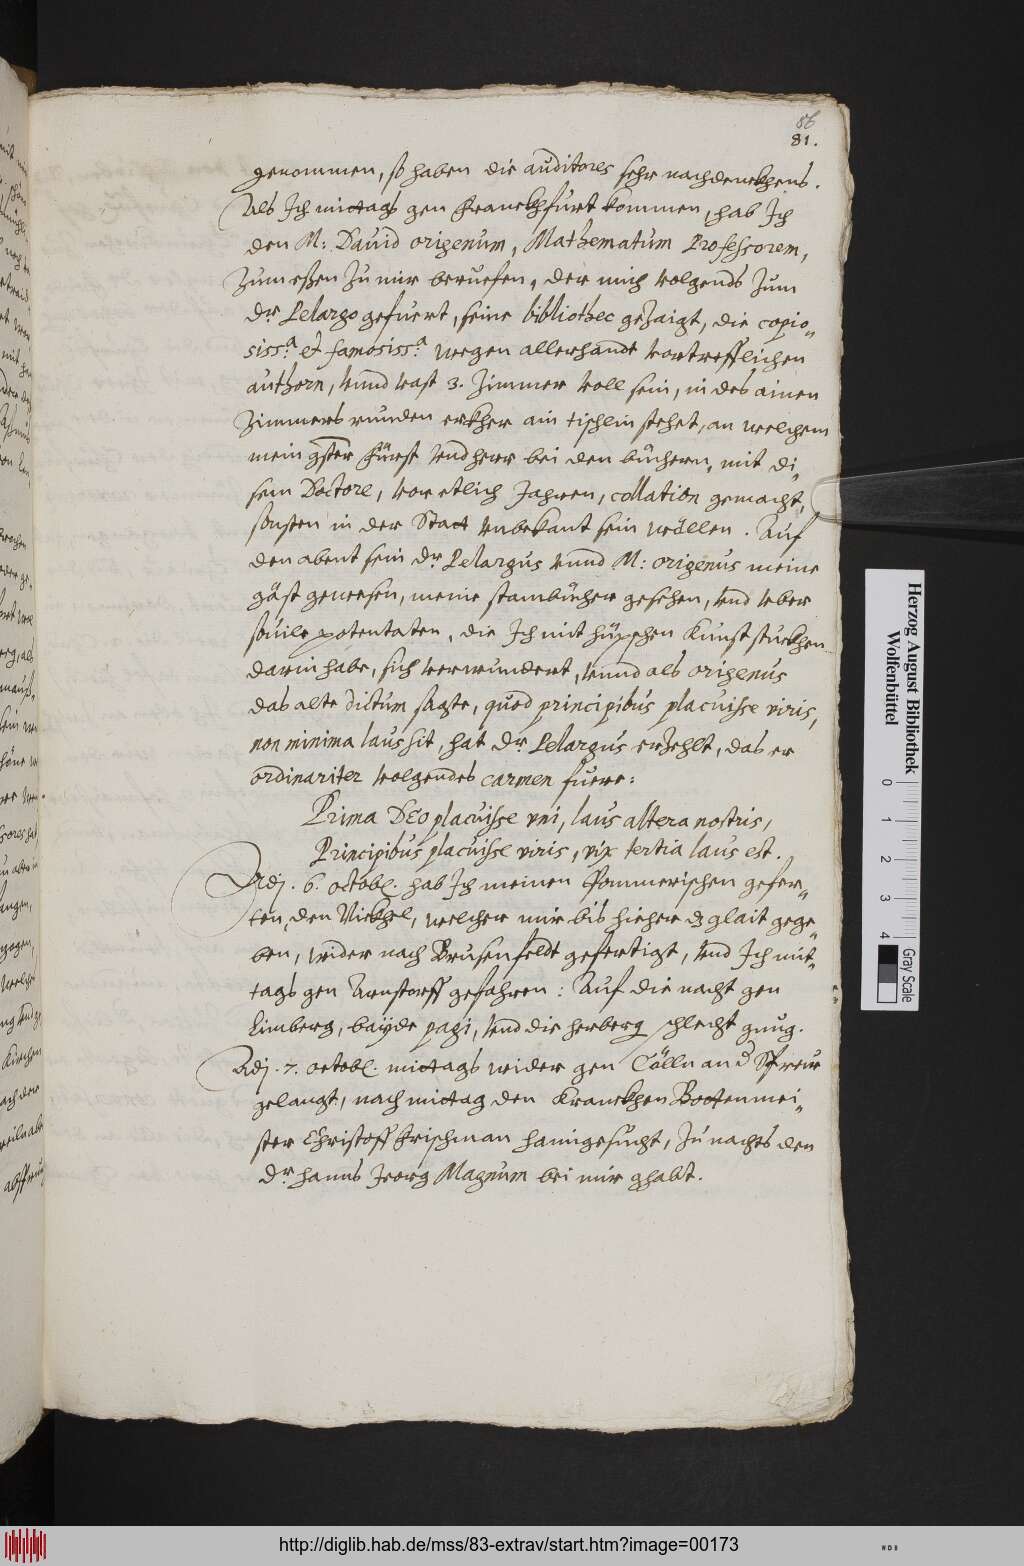 86
81.
genommen, so haben die auditores sehr nachdenckhens.
Als Ich mittags gen Franckhfurt kommen, hab Ich
den M: Dauid origenum, Mathematum Professorem,
Zum eßen Zu mir beruefen, der mich volgends Zum
Dr. Pelargo gefuert, seine bibliothec geZaigt, die copio„
siss.a et famosiss.a wegen allerhandt vortrefflichen
authorn, vnnd vast 3. Zimmer voll sein, in des ainen
Zimmers runden erkher ain tischlin stehet, an welchem
mein gster Fürst vnd herr bei den büchern, mit di„
sem Doctore, vor etlich Jahren, collation gemacht,
sonsten in der Statt vnbekant sein wöllen. Auf
den abent sein Dr. Pelargus vnnd M: origenus meine
gäst gewesen, meine stambücher gesehen, vnd vber
souile potentaten, die Ich mit hüpschen Kunst stuckhen
darin habe, sich verwundert, vnnd als origenus
das alte dictum sagte, quod principibus placuisse viris,
non minima laus sit, hat Dr. Pelargus erZehlt, das er
ordinariter volgendes carmen fuere:
Prima DEo placuisse vni, laus altera nostris,
Principibus placuisse viris, vix tertia laus est.
Adj. 6. octobr. hab Ich meinen Pommerischen gefer„
ten, den Nickhel, welcher mir bis hieher dz glait gege„
ben, wider nach Brusenfeldt gefertigt, vnd Ich mit„
tags gen Arnstorff gefahren: Auf die nacht gen
Limberg, bayde pagi, vnd die herberg schlecht gnug.
Adj. 7. octobr. mittags wider gen Cölln an d Sprew
gelangt, nach mittag den Kranckhen Bottenmei„
ster Christoff Frischman haimgesucht, Zu nachts den
Dr. hanns Jeorg Magnum bei mir ghabt.
Herzog August Bibliothek
Wolfenbüttel
0 1 2 3 4
Gray Scale
http://diglib.hab.de/mss/83-extrav/start.htm?image=00173